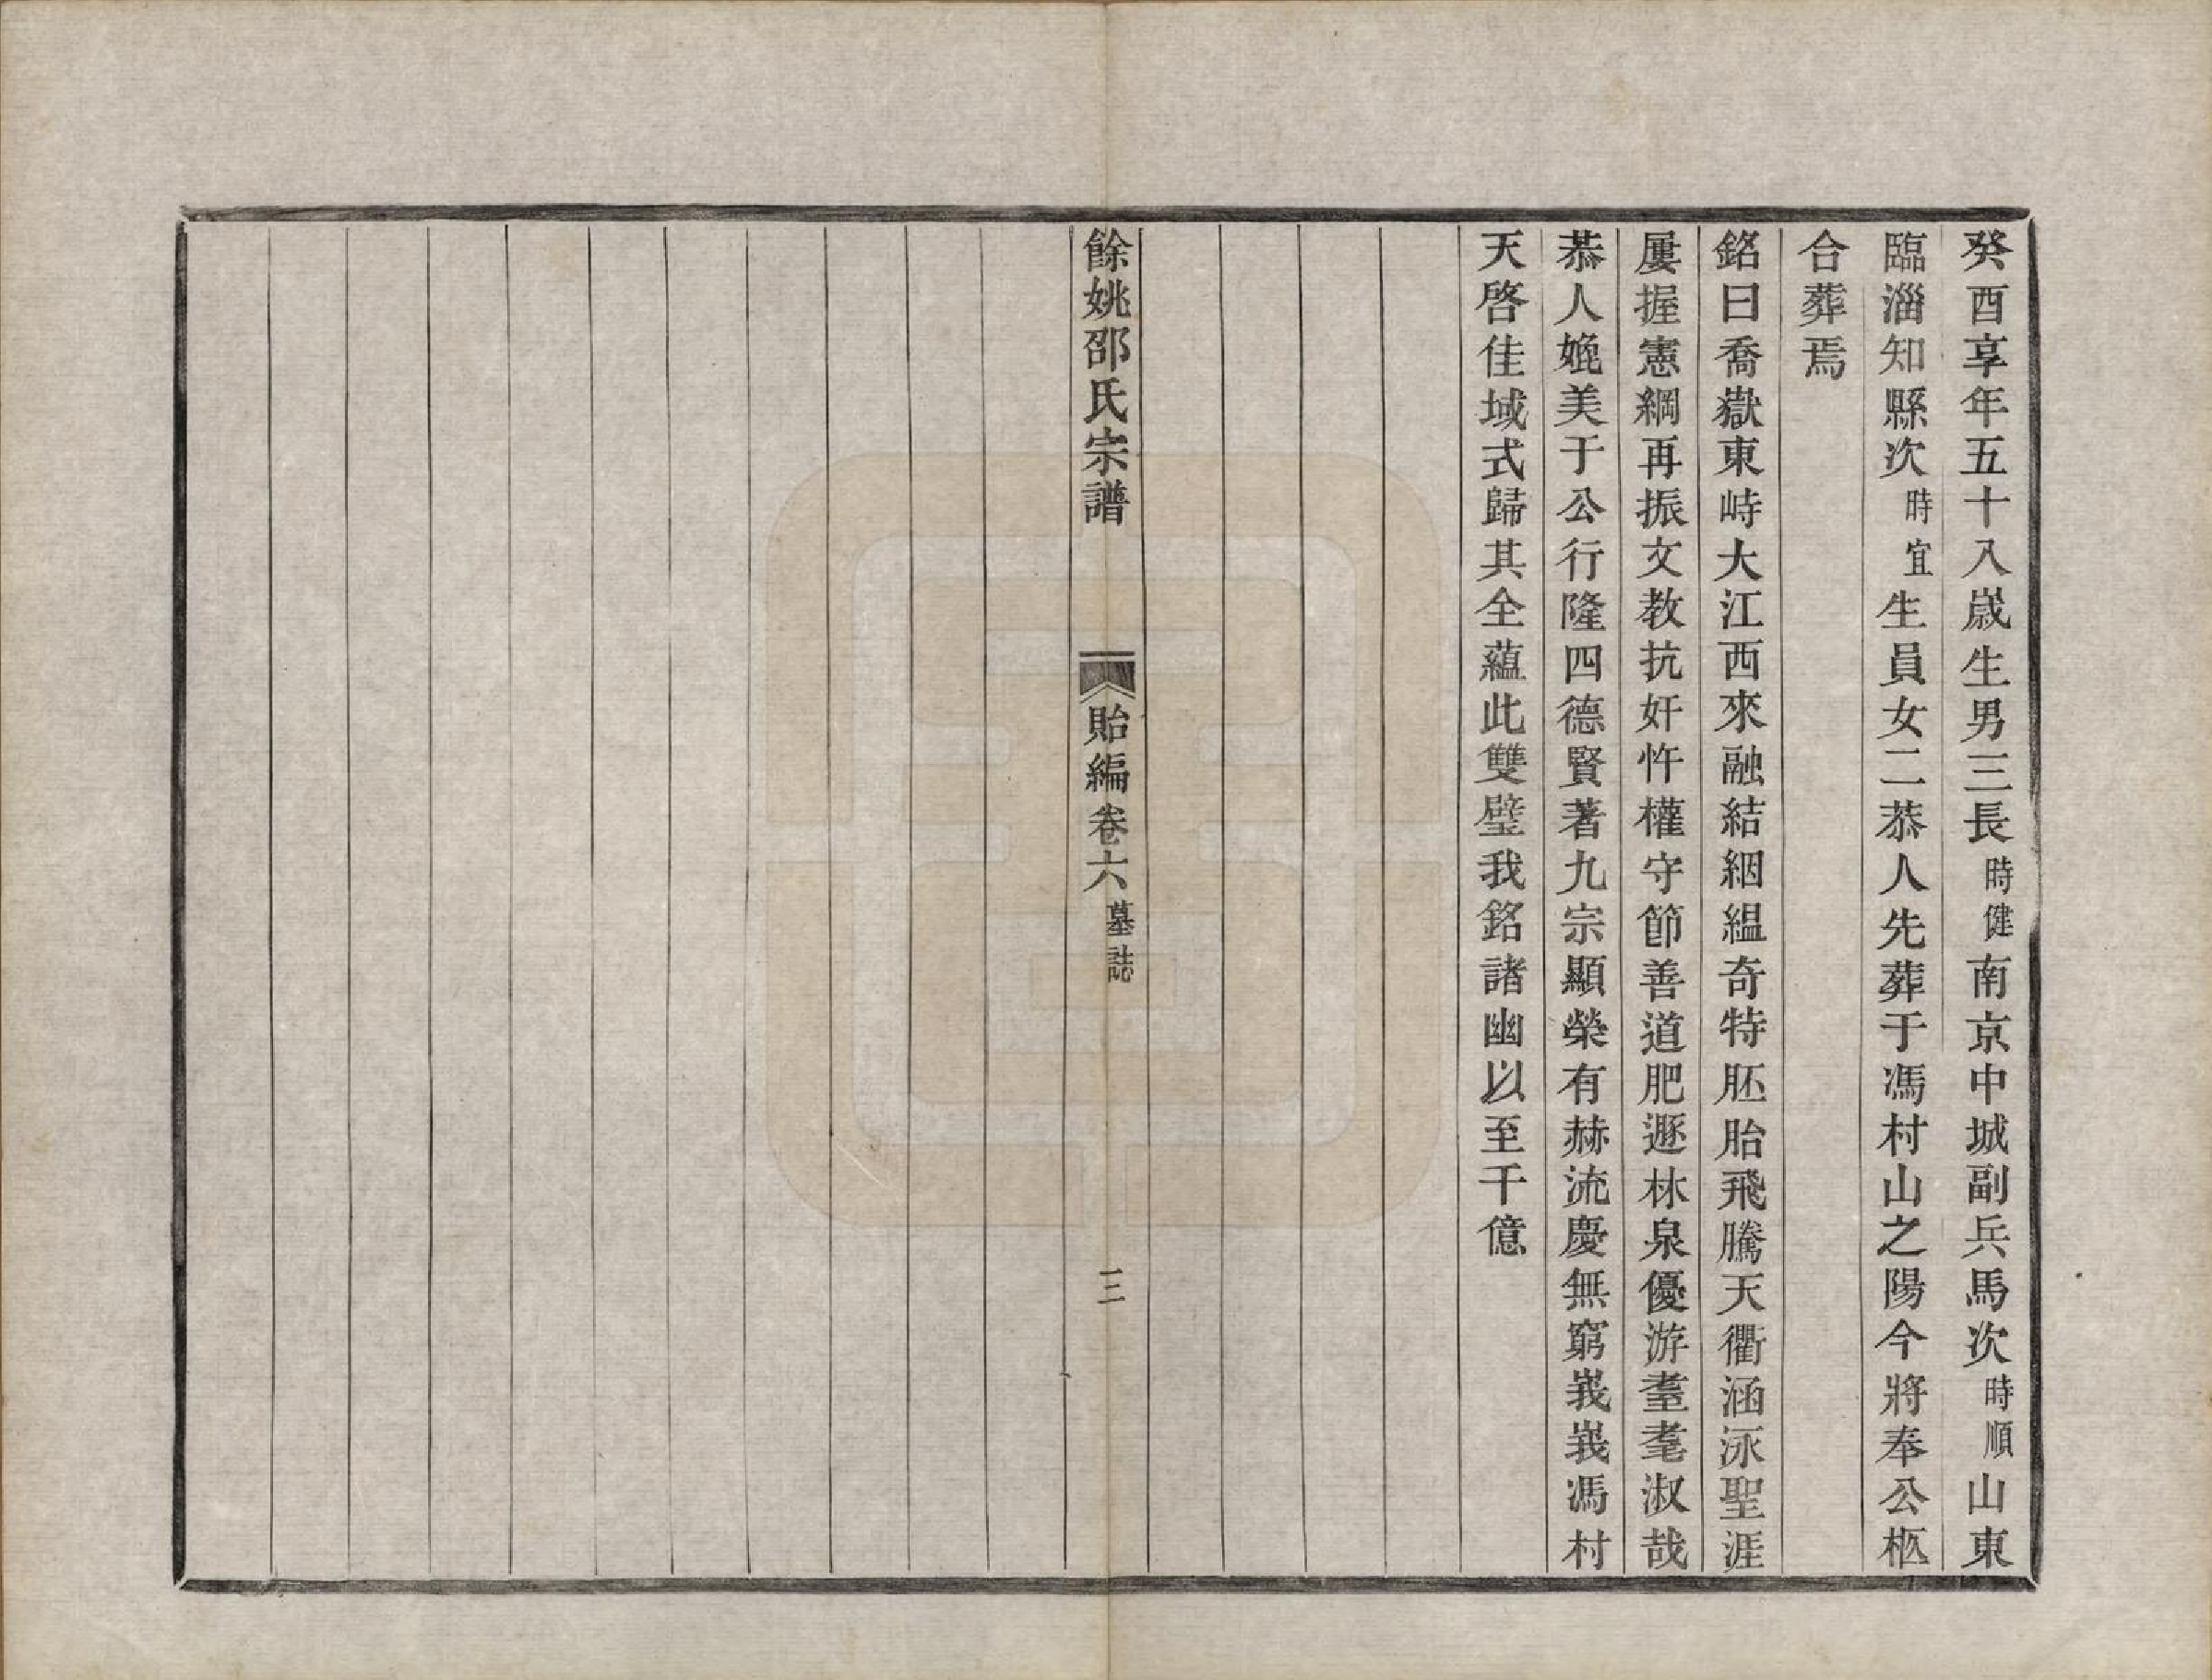 癸酉享年五十八歲生男三長時健南京中城副兵馬次時順山東
臨淄知縣次時宜生員女二恭人先葬于馮村山之陽今將奉公柩
合葬焉
銘曰喬嶽東峙大江西來融結絪縕奇特胚胎飛騰天衢涵泳聖涯
屢握憲綱再振文教抗奸忤權守節善道肥遯林泉優游耋耄淑哉
恭人婉美于公行隆四德賢著九宗顯榮有赫流慶無窮峩峩馮村
天啓佳城式歸其全蘊此雙璧我銘諸幽以至千億
餘姚邵氏宗譜 貽編卷六墓誌 三